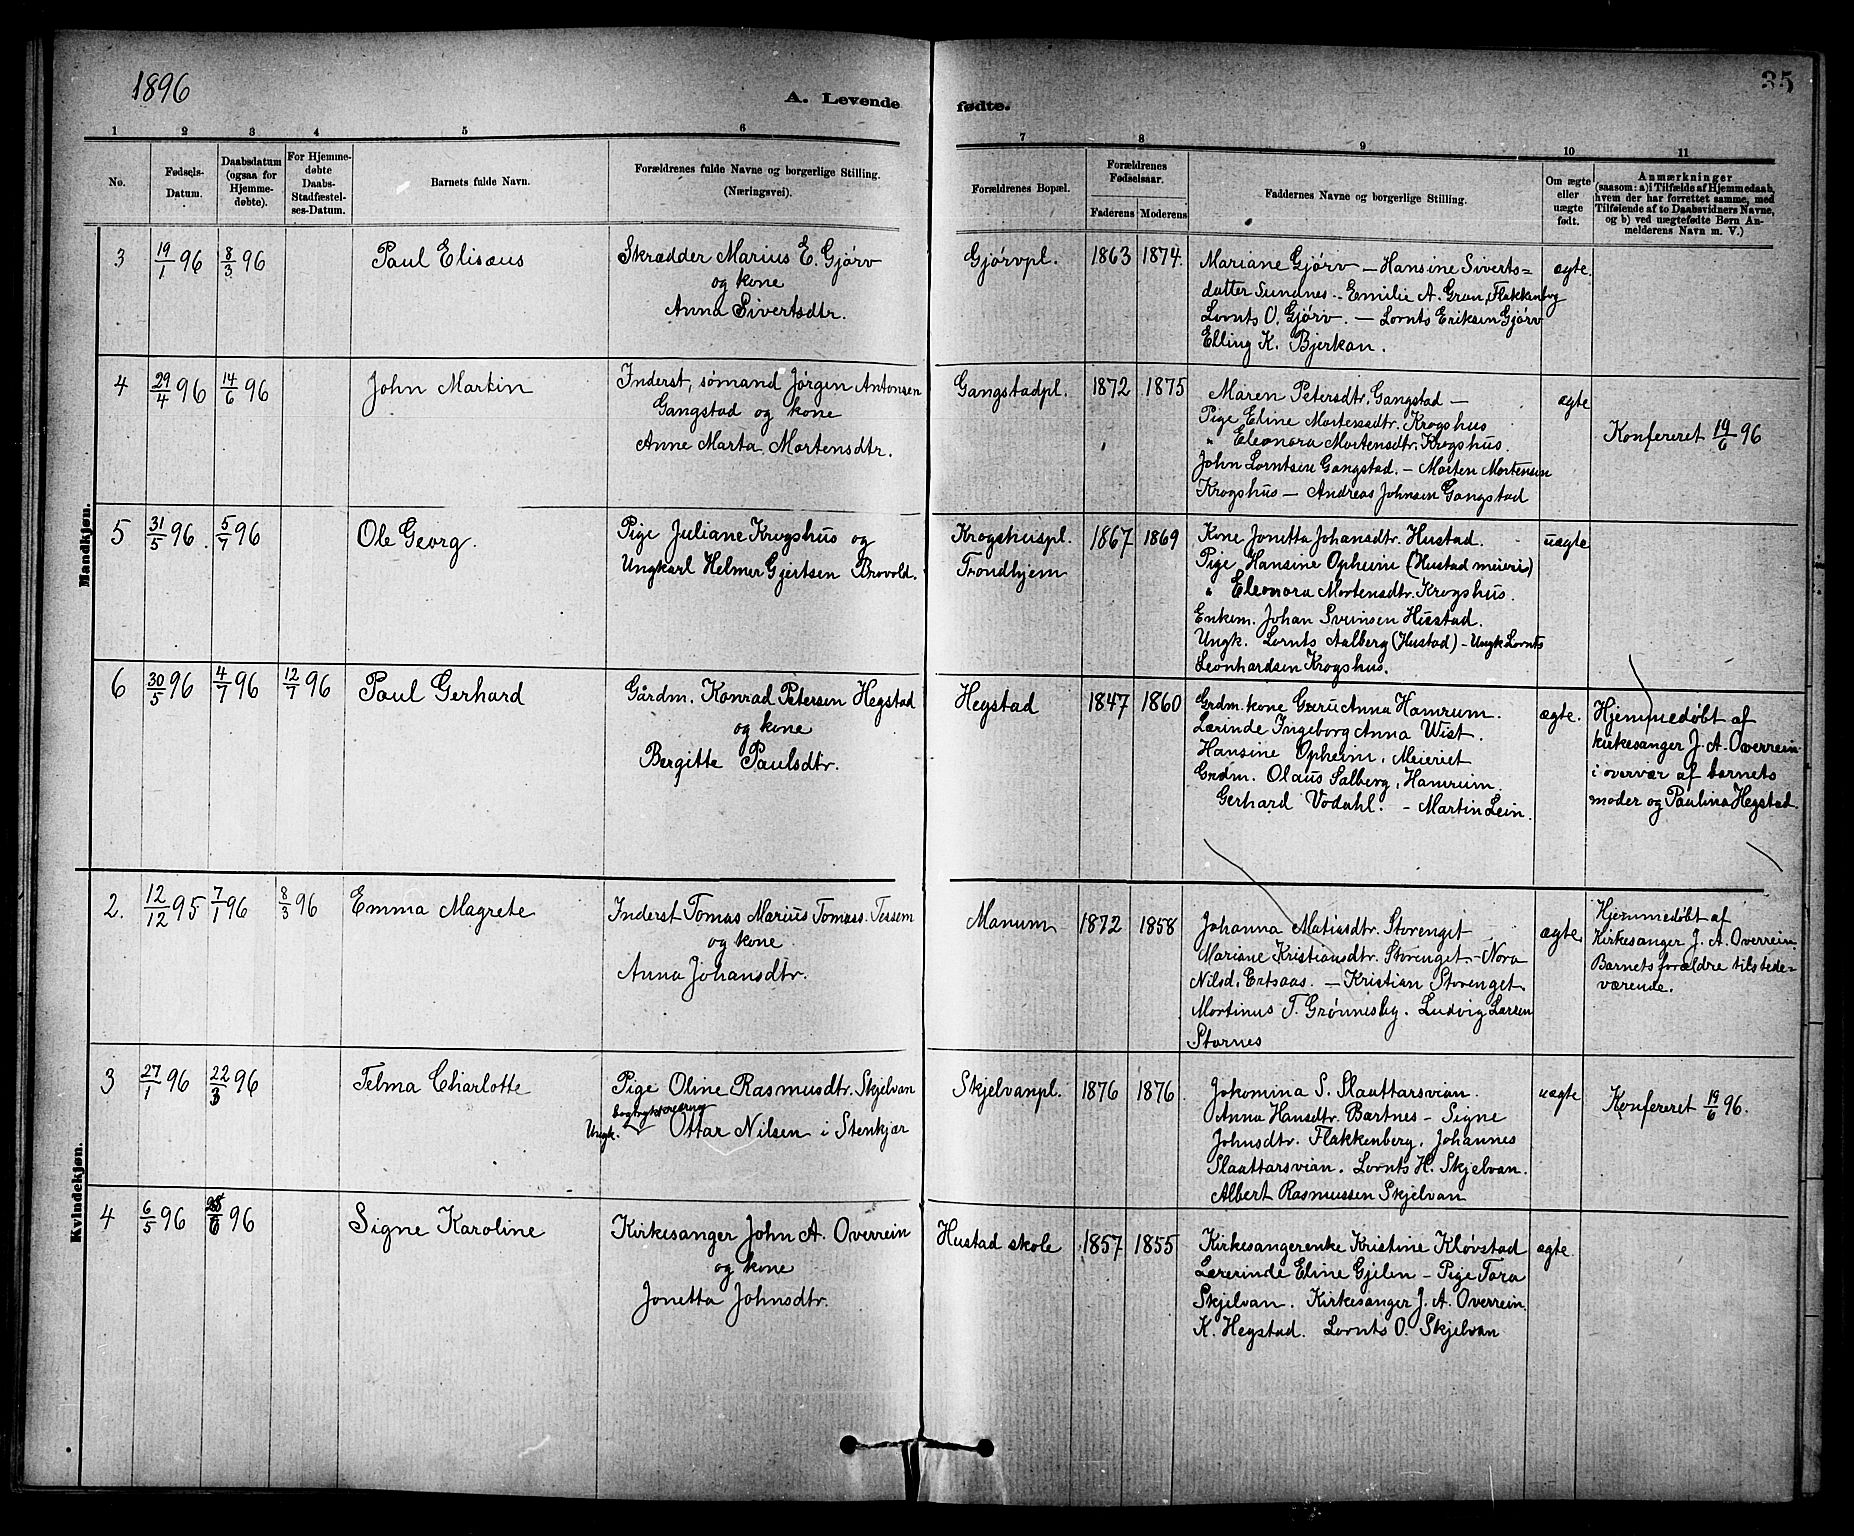 1896
35
A. Levende fødte.
1 2 3 4 5 6 7 8 9 10 11
No.
Fødsels-
Datum.
Daabsdatum
(ogsaa for
Hjemme-
døbte).
For Hjemme-
døbte
Daabs-
Stadfæstel-
ses-Datum.
Barnets fulde Navn.
Forældrenes fulde Navne og borgerlige Stilling.
(Næringsvei).
Forældrenes Bopæl.
Forældrenes
Fødselsaar.
Faderens Moderens
Faddernes Navne og borgerlige Stilling.
Om ægte
eller
uægte
født.
Anmærkninger
(saasom: a) i Tilfælde af Hjemmedaab,
hvem der har forrettet samme, med
Tilføiende af to Daabsvidners Navne,
og b) ved uægtefødte Børn An-
melderens Navn m. V.)
Mandkjøn.
3 19/1 96 8/3 96 Paul Elisæus
Skrædder Marius E. Gjørv
og kone
Anna Sivertsdtr.
Gjørvpl. 1863 1874.
Mariane Gjørv — Hansine Siverts=
datter Sundnes. - Emilie A. Gran, Flakkenberg
Lornts O. Gjørv. — Lornts Eriksen Gjørv
Elling K. Bjerkan.
ægte.
4 29/4 96 14/6 96 John Martin
Inderst, sømand Jørgen Antonsen
Gangstad og kone
Anne Marta Mortensdtr.
Gangstadpl. 1872 1875
Maren Petersdtr. Gangstad —
Pige Eline Mortensdtr. Krogshus
" Eleonora Mortensdtr. Krogshus.
John Lorntsen Gangstad. — Morten Mortensen
Krogshus — Andreas Johnsen Gangstad
ægte
Konfereret 19/6 96
5 31/5 96. 5/7 96 Ole Georg.
Pige Juliane Krogshus og
Ungkarl Helmer Gjertsen Brovold.
Krogshuspl.
Trondhjem
1867 1869
Kone Jonetta Johansdtr. Hustad.
Pige Hansine Opheim (Hustad meieri)
" Eleonora Mortensdtr. Krogshus.
Enkem. Johan Svensen Hustad.
Ungk. Lornts Aalberg (Hustad) - Ungk Lornts
Leonhardsen Krogshus.
uægte
6 30/5 96 4/7 96 12/7 96 Paul Gerhard
Gårdm. Konrad Petersen Hegstad
og kone
Bergitte Paulsdtr.
Hegstad 1847 1860
Grdm. kone Guru Anna Hamrum.
Lærinde Ingeborg Anna Wist.
Hansine Opheim, Meieriet
Grdm. Olaus Salberg, Hamrum.
Gerhard Vodahl. - Martin Lein.
ægte.
Hjemmedøbt af
kirkesanger J. A. Overrein
i overvær af barnets
moder og Paulina Hegstad.
Kvindekjøn.
2. 12/12 95 7/1 96 8/3 96 Emma Magrete
Inderst Tomas Marius Tomass. Tessem
og kone
Anna Johansdtr.
Manum 1872 1858
Johanna Matiasdtr. Storenget
Mariane Kristiansdtr. Storenget. - Nora
Nilsd. Ertsaas. — Kristian Storenget.
Mortinus T. Grønnesby. Ludvig Larsen
Stornes
ægte
Hjemmedøbt af
Kirkesanger J. A. Overrein.
Barnets forældre tilstede=
værende.
3 27/1 96 22/3 96 Telma Charlotte
Pige Oline Rasmusdtr. Skjelvan
Ungk. Ottar Nilsen i Stenkjær
Skjelvanpl. 1876 1876.
Johomina S. Slaattarsvian.
Anna Hansdtr. Bartnes — Signe
Johnsdtr. Flakkenberg. Johannes
Slaattarsvian. Lornts H. Skjelvan.
Albert Rasmussen Skjelvan
uægte
Konfereret 19/6 96.
4 6/5 96 96 Signe Karoline
Kirkesanger John A. Overrein
og kone
Jonetta Johnsdtr.
Hustad skole 1857 1855
Kirkesangerenke Kristine Kløvstad
Lærerinde Eline Gjelen — Pige Tora
Skjelvan. Kirkesanger J. A. Overrein.
K. Hegstad. Lornts O. Skjelvan
ægte.